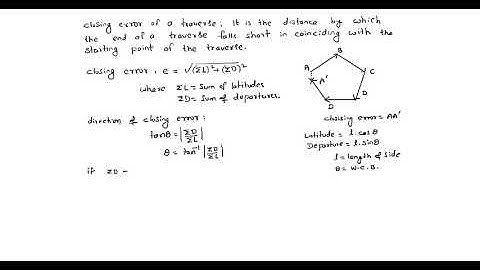 closing error of a traverse: It is the distance by which
the end of a traverse falls short in coinciding with the
starting point of the traverse.
closing error, e = √(ΣL)²+(ΣD)²
where ΣL = Sum of latitudes
ΣD = Sum of departures.
direction of closing error:
tanθ = |ΣD/ΣL|
θ = tan⁻¹ |ΣD/ΣL|
if ΣD =
B
A
A'
C
D
D
closing error = AA'
Latitude = l.cosθ
Departure = l.sinθ
l = length of side
θ = W.C.B.